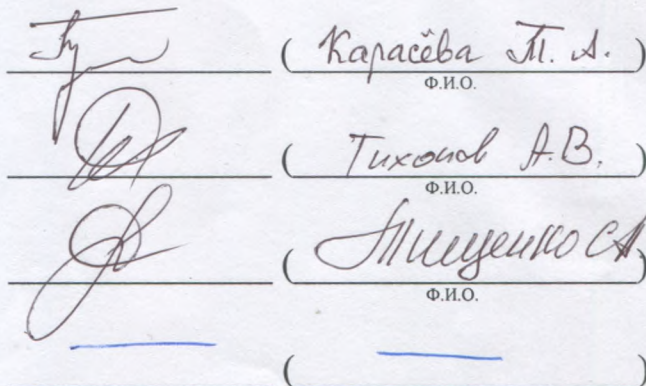 ( Карасёва Т. А. )
Ф.И.О.
( Тихонов А.В. )
Ф.И.О.
( Тищенко СА )
Ф.И.О.
(